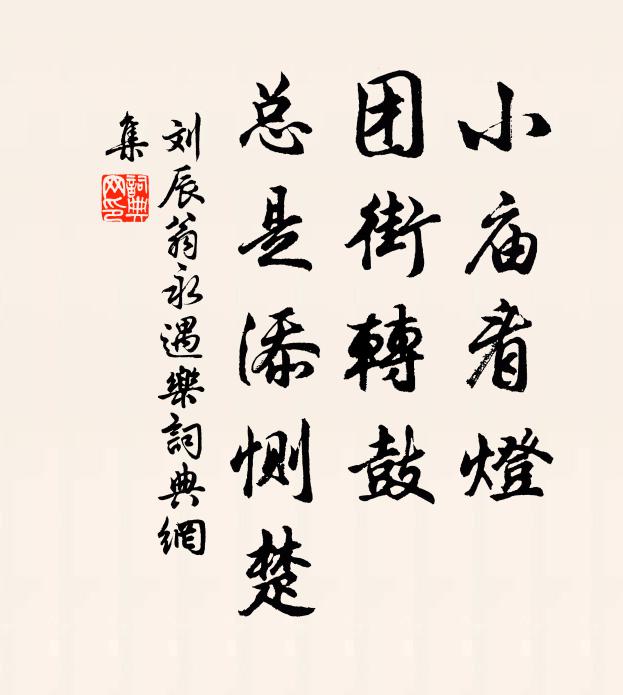 小庙看燈
团街轉鼓
总是添惻楚
刘辰翁永遇樂詞典網
集
詞典
网印